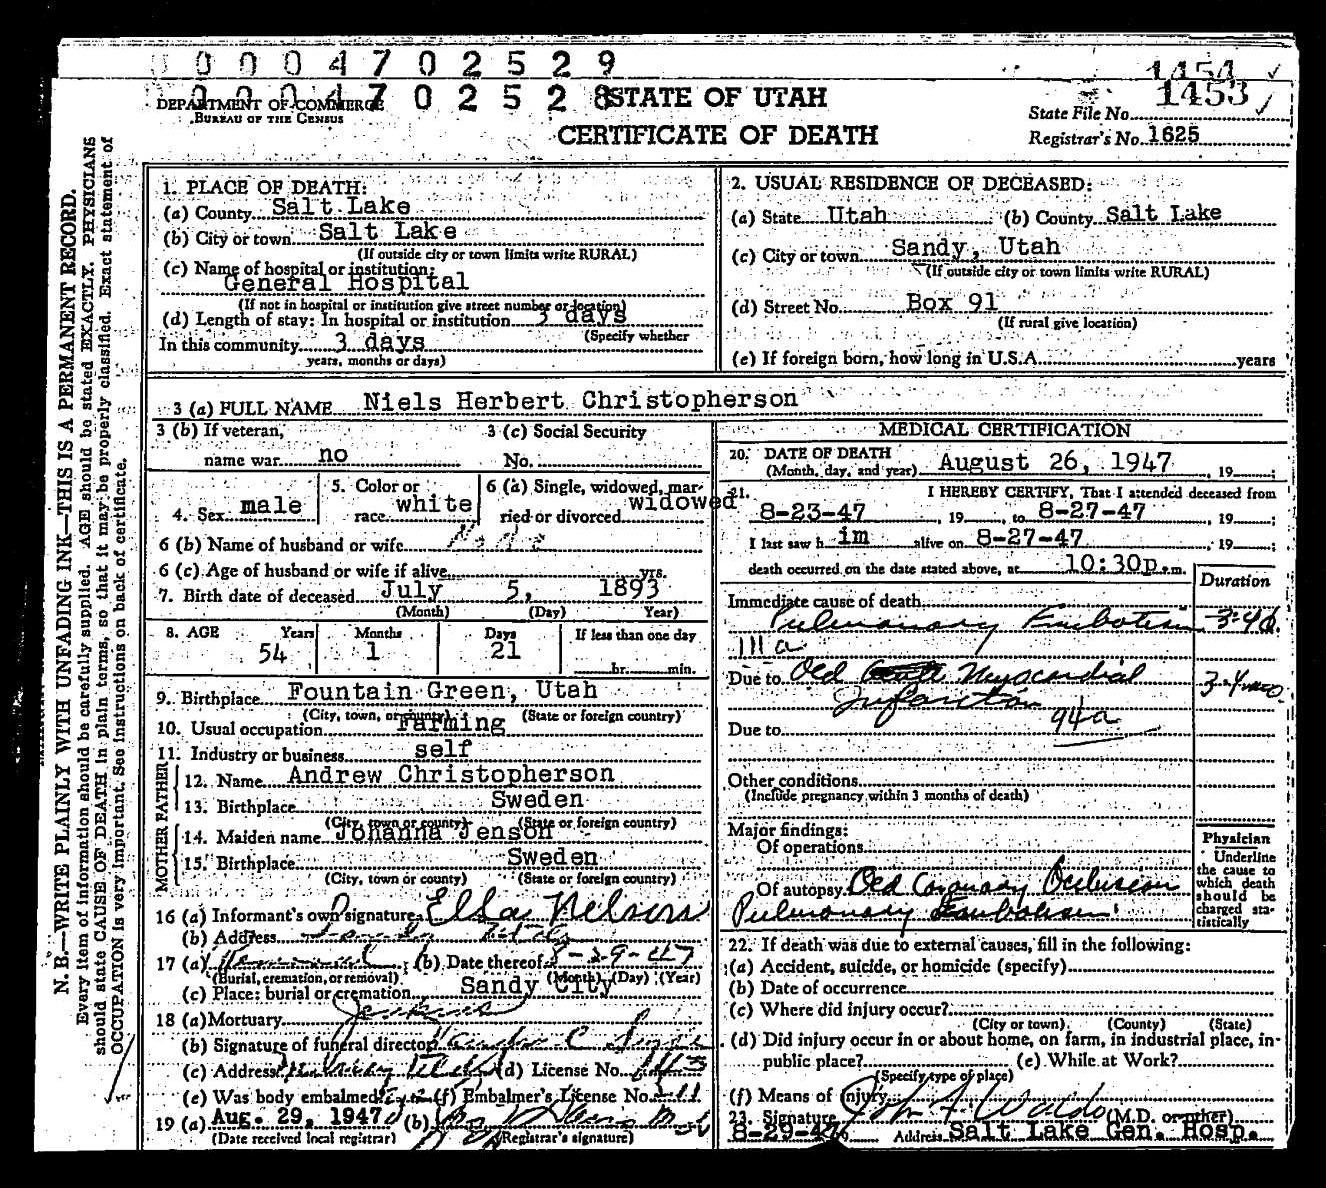 0 0 0 0 4 7 0 2 5 2 9
1454 ✓
0 0 0 0 4 7 0 2 5 2 8
1453 ✓
DEPARTMENT OF COMMERCE
BUREAU OF THE CENSUS
STATE OF UTAH
CERTIFICATE OF DEATH
State File No.
Registrar's No. 1625
N. B.—WRITE PLAINLY WITH UNFADING INK—THIS IS A PERMANENT RECORD.
Every item of information should be carefully supplied. AGE should be stated EXACTLY. PHYSICIANS
should state CAUSE OF DEATH in plain terms, so that it may be properly classified. Exact statement of
OCCUPATION is very important. See instructions on back of certificate.
1. PLACE OF DEATH:
(a) County Salt Lake
(b) City or town Salt Lake
(If outside city or town limits write RURAL)
(c) Name of hospital or institution:
General Hospital
(If not in hospital or institution give street number or location)
(d) Length of stay: In hospital or institution 3 days
(Specify whether
In this community 3 days
years, months or days)
2. USUAL RESIDENCE OF DECEASED:
(a) State Utah (b) County Salt Lake
(c) City or town Sandy, Utah
(If outside city or town limits write RURAL)
(d) Street No. Box 91
(If rural give location)
(e) If foreign born, how long in U.S.A. years
3 (a) FULL NAME Niels Herbert Christopherson
3 (b) If veteran,
name war no
3 (c) Social Security
No.
4. Sex male
5. Color or
race white
6 (a) Single, widowed, mar-
ried or divorced widowed
6 (b) Name of husband or wife None
6 (c) Age of husband or wife if alive yrs.
7. Birth date of deceased July 5, 1893
(Month) (Day) Year)
8. AGE Years Months Days If less than one day
54 1 21 hr. min.
9. Birthplace Fountain Green, Utah
(City, town, or county) (State or foreign country)
10. Usual occupation Farming
11. Industry or business self
FATHER
12. Name Andrew Christopherson
13. Birthplace Sweden
(City, town or county) (State or foreign country)
MOTHER
14. Maiden name Johanna Jenson
15. Birthplace Sweden
(City, town or county) (State or foreign country)
16 (a) Informant's own signature Ella Nelson
(b) Address Sandy Utah
17 (a) Removal (b) Date thereof 8-29-47
(Burial, cremation, or removal) (Month) (Day) (Year)
(c) Place: burial or cremation Sandy City
18 (a) Mortuary Jenkins
(b) Signature of funeral director
(c) Address Murray Utah (d) License No. 143
(e) Was body embalmed (f) Embalmer's License No.
19 (a) Aug. 29, 1947 (b)
(Date received local registrar) (Registrar's signature)
MEDICAL CERTIFICATION
20. DATE OF DEATH
(Month, day, and year) August 26, 1947, 19
21. I HEREBY CERTIFY, That I attended deceased from
8-23-47, 19 to 8-27-47, 19
I last saw h im alive on 8-27-47, 19
death occurred on the date stated above, at 10:30p.m.
Duration
Immediate cause of death
Pulmonary Embolism 3-4 d.
111a
Due to Old Myocardial
Infarction 3-4
94a
Due to
Other conditions
(Include pregnancy within 3 months of death)
Major findings:
Of operations
Of autopsy Old Coronary Occlusion
Pulmonary Embolism
Physician
Underline
the cause to
which death
should be
charged sta-
tistically
22. If death was due to external causes, fill in the following:
(a) Accident, suicide, or homicide (specify)
(b) Date of occurrence
(c) Where did injury occur?
(City or town) (County) (State)
(d) Did injury occur in or about home, on farm, in industrial place, in
public place? (e) While at Work?
(Specify type of place)
(f) Means of injury
23. Signature John F. Waldo (M.D. or other)
8-29-47 Address Salt Lake Gen. Hosp.